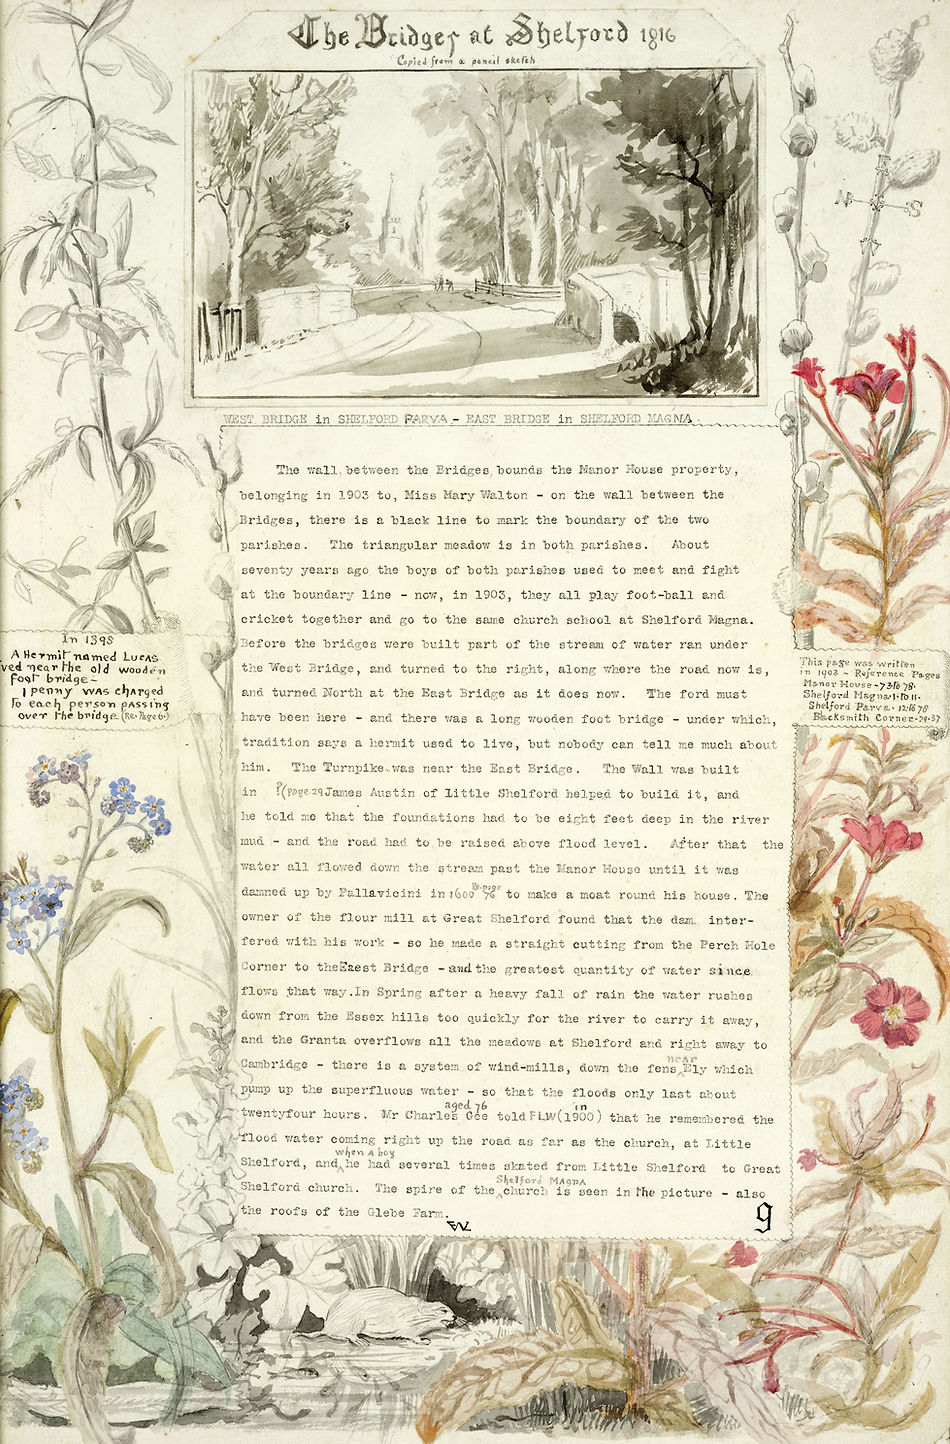 The Bridges at Shelford 1816
Copied from a pencil sketch
E
N S
W
WEST BRIDGE in SHELFORD PARVA - EAST BRIDGE in SHELFORD MAGNA.
The wall between the Bridges bounds the Manor House property,
belonging in 1903 to, Miss Mary Walton - on the wall between the
Bridges, there is a black line to mark the boundary of the two
parishes. The triangular meadow is in both parishes. About
seventy years ago the boys of both parishes used to meet and fight
at the boundary line - now, in 1903, they all play foot-ball and
cricket together and go to the same church school at Shelford Magna.
Before the bridges were built part of the stream of water ran under
the West Bridge, and turned to the right, along where the road now is,
and turned North at the East Bridge as it does now. The ford must
have been here - and there was a long wooden foot bridge - under which,
tradition says a hermit used to live, but nobody can tell me much about
him. The Turnpike was near the East Bridge. The Wall was built
in ?(page 29 James Austin of Little Shelford helped to build it, and
he told me that the foundations had to be eight feet deep in the river
mud - and the road had to be raised above flood level. After that the
water all flowed down the stream past the Manor House until it was
damned up by Pallavicini in 1600 Re. page 76 to make a moat round his house. The
owner of the flour mill at Great Shelford found that the dam inter-
fered with his work - so he made a straight cutting from the Perch Hole
Corner to theEaest Bridge - and the greatest quantity of water since
flows that way.In Spring after a heavy fall of rain the water rushes
down from the Essex hills too quickly for the river to carry it away,
and the Granta overflows all the meadows at Shelford and right away to
Cambridge - there is a system of wind-mills, down the fens near Ely which
pump up the superfluous water - so that the floods only last about
twentyfour hours. Mr Charles Gee aged 76 told FLW (in 1900) that he remembered the
flood water coming right up the road as far as the church, at Little
Shelford, and when a boy he had several times skated from Little Shelford to Great
Shelford church. The spire of the Shelford Magna church is seen in the picture - also
the roofs of the Glebe Farm.
FLW
9
In 1398
A Hermit named Lucas
ved near the old wooden
foot bridge -
1 penny was charged
to each person passing
over the bridge (Re. Page 6.)
This page was written
in 1903 - Reference Pages
Manor House - 73 to 78.
Shelford Magna. 1. to 11.
Shelford Parva. 12 to 78
Blacksmith Corner - 29. 37